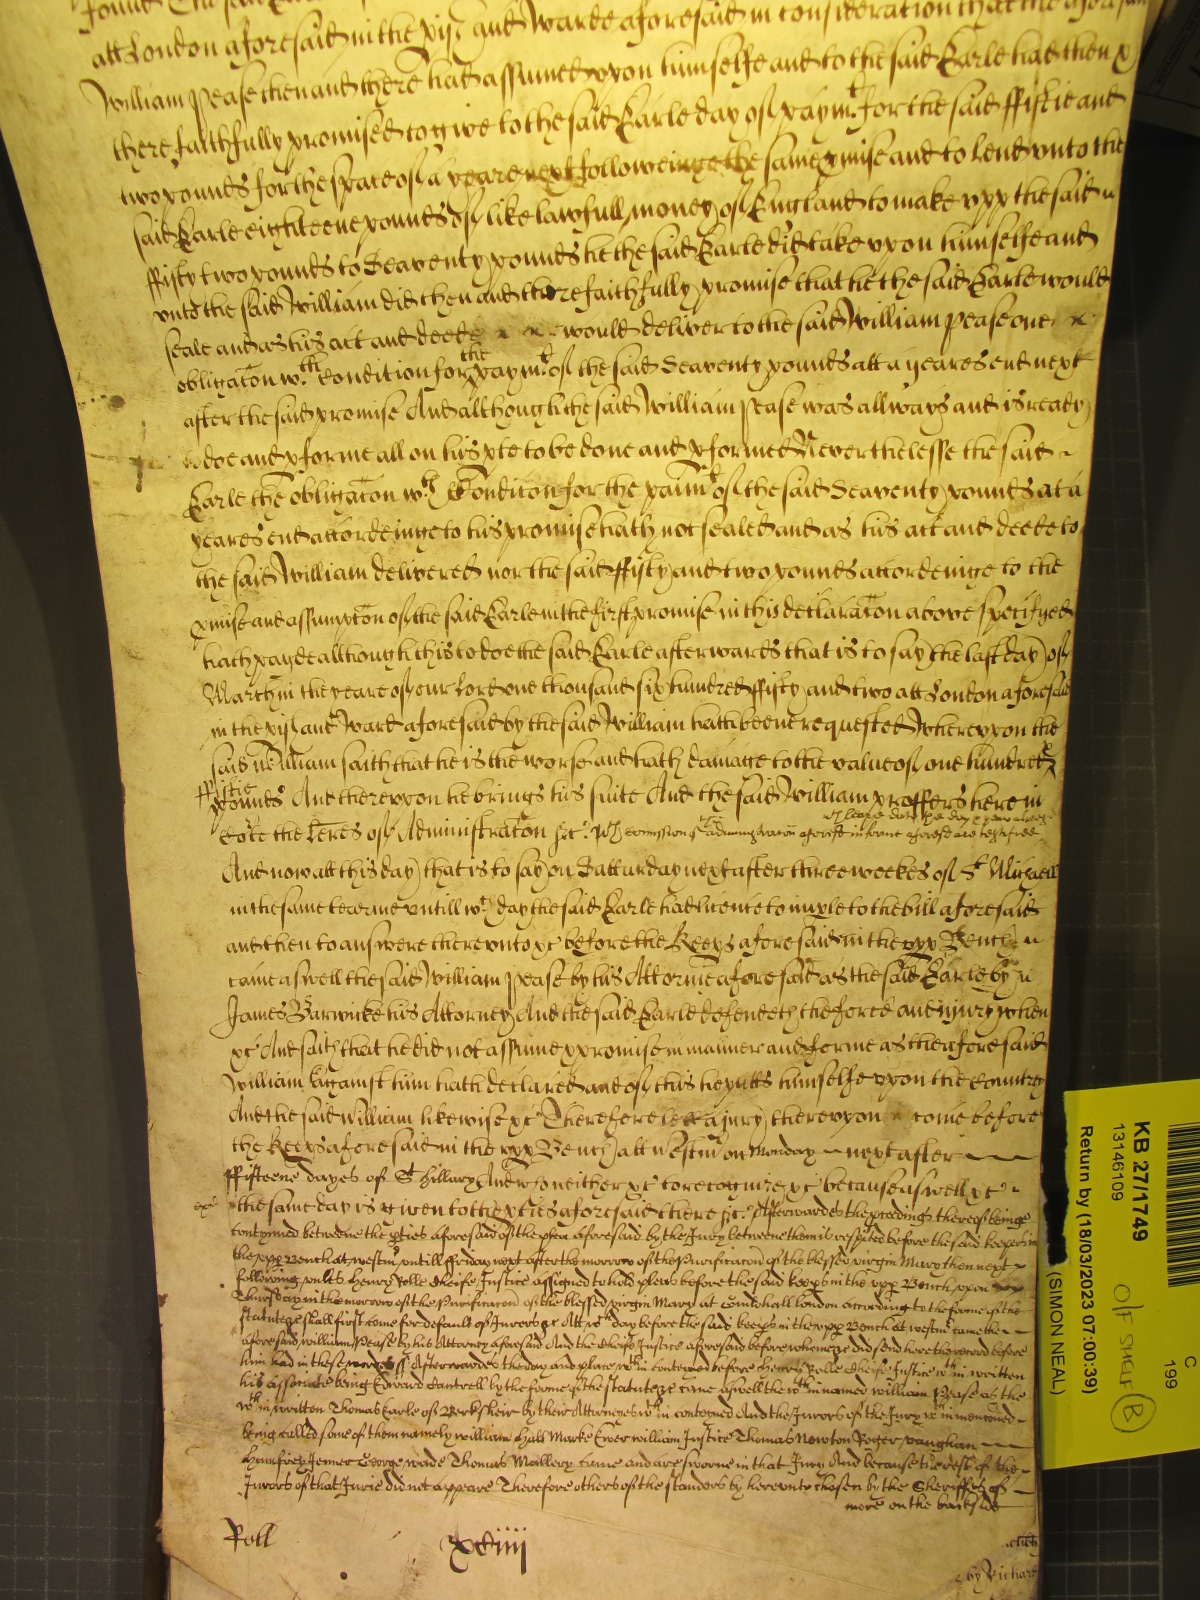 att London aforesaid in the pish and Warde aforesaid in consideration that the aforesaid
William Pease then and there had assumed upon himselfe and to the said Earle had then &
there faithfully promised to give to the said Earle day of paymt. for the said ffiftie and
two pounds for the space of a yeare next followeinge the same pmise and to lend unto the
said Earle eighteene pounds of like lawfull money of England to make upp the said
ffifty two pounds to Seaventy pounds he the said Earle did take upon himselfe and
unto the said William did then and there faithfully promise that he the said Earle would
seale and as his act and deede would deliver to the said William Pease one
obligacon wth. Condition for the paymt. of the said Seaventy pounds att a yeares end next
after the said promise And although the said William Pease was allways and is ready
to doe and pforme all on his pte to be done and pformed Neverthelesse the said
Earle the obligacon wth. Condicon for the paimt of the said Seaventy pounds at a
yeares end accordeinge to his promise hath not sealed and as his act and deede to
the said William delivered nor the said ffifty and two pounds accordeinge to the
pmise and assumpcon of the said Earle in the first promise in this declaracon above specifyed
hath payde although this to doe the said Earle afterwards that is to say the last day of
March in the yeare of our Lord one thousand six hundred ffifty and two att London aforesaid
in the pish and Ward aforesaid by the said William hath beene requested Whereupon the
said William saith that he is the worse and hath damage to the value of one hundred
ffiftie
pounds And thereupon he brings his suite And the said William proffers here in
Cote the Lres of Administracon &c. wch
And now att this day that is to say on Satturday next after three weekes of St. Michaell
in the same tearme untill wch day the said Earle had licence to imple to the bill aforesaid
and then to answere thereunto &c before the Keeps aforesaid in the upp Bench
came aswell the said William Pease by his Attorney aforesaid as the said Earle by
James Barwicke his Attorney And the said Earle defendeth the force and injury when
&c And saith that he did not assume & promise in manner and forme as the aforesaid
William against him hath declared and of this he putts himselfe upon the Country
And the said William likewise &c Therefore lett a jury thereupon come before
the Keeps aforesaid in the upp Bench att Westm on Monday next after
ffifteene dayes of St. Hillary And who neither &c to recognize &c because aswell &c
the same day is given to the pties aforesaid there &c. Afterwardes the pcedings thereof beinge
contynued betweene the pties aforesaid of the plea aforesaid by the Jury betweene them is respited before the said keepers in
the upp Bench at westm untill ffriday next after the morrow of the Purificacon of the blessed virgin Mary then next
following unles Henry Rolle Cheife Justice assigned to hold pleas before the said keeps in the upp Bench upon
Thursday in the morrow of the Purificacon of the blessed virgin Mary at Guildhall london according to the forme of the
statute shall first come for default of Jurors &c At wch day before the said keeps in the upp Bench at westm came the
aforesaid william Pease by his Attorney aforesaid And the Cheife Justice aforesaid before whome &c did send here the record before
him had in these words ss Afterwardes the day and place wthin conteined before Henry Rolle Cheife Justice wthin written
his associate being Edward Cantrell by the forme of the statute &c came aswell the wthin named william Pease as the
wthin written Thomas Earle of Berksheir by their Attorneyes wthin conteyned And the Jurors of the Jury wthin mencioned
being called some of them namely william Hall Marke Ewer william Justice Thomas Newton Roger vaughan
Humfrey Jemet George wade Thomas Mallery came and are sworne in that Jury And because the rest of the
Jurors of that Jurie did not appeare Therefore others of the standers by hereunto chosen by the Sheriffes of
more on the backside
Roll xciiij
by Richard
KB 27/1749
13146109
Return by (18/03/2023 07:00:39)
(SIMON NEAL)
OFF SHELF (B)
C
199